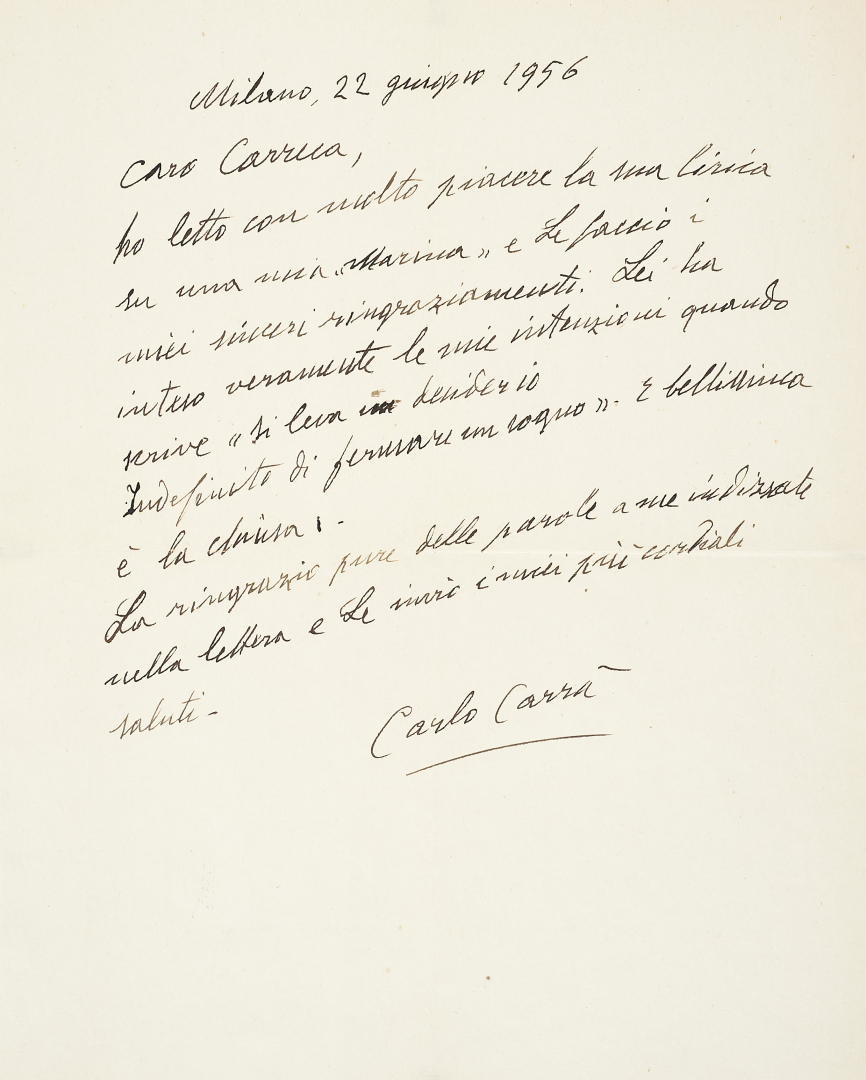 Milano, 22 giugno 1956
Caro Carreca,
ho letto con molto piacere la sua lirica
su una mia „Marina„ e Le faccio i
miei sinceri ringraziamenti. Lei ha
inteso veramente le mie intenzioni quando
scrive „si leva un desiderio
Indefinito di fermare un sogno„. E bellissima
è la chiusa! -
La ringrazio pure delle parole a me indirizzate
nella lettera e Le invio i miei più cordiali
saluti -
Carlo Carrà